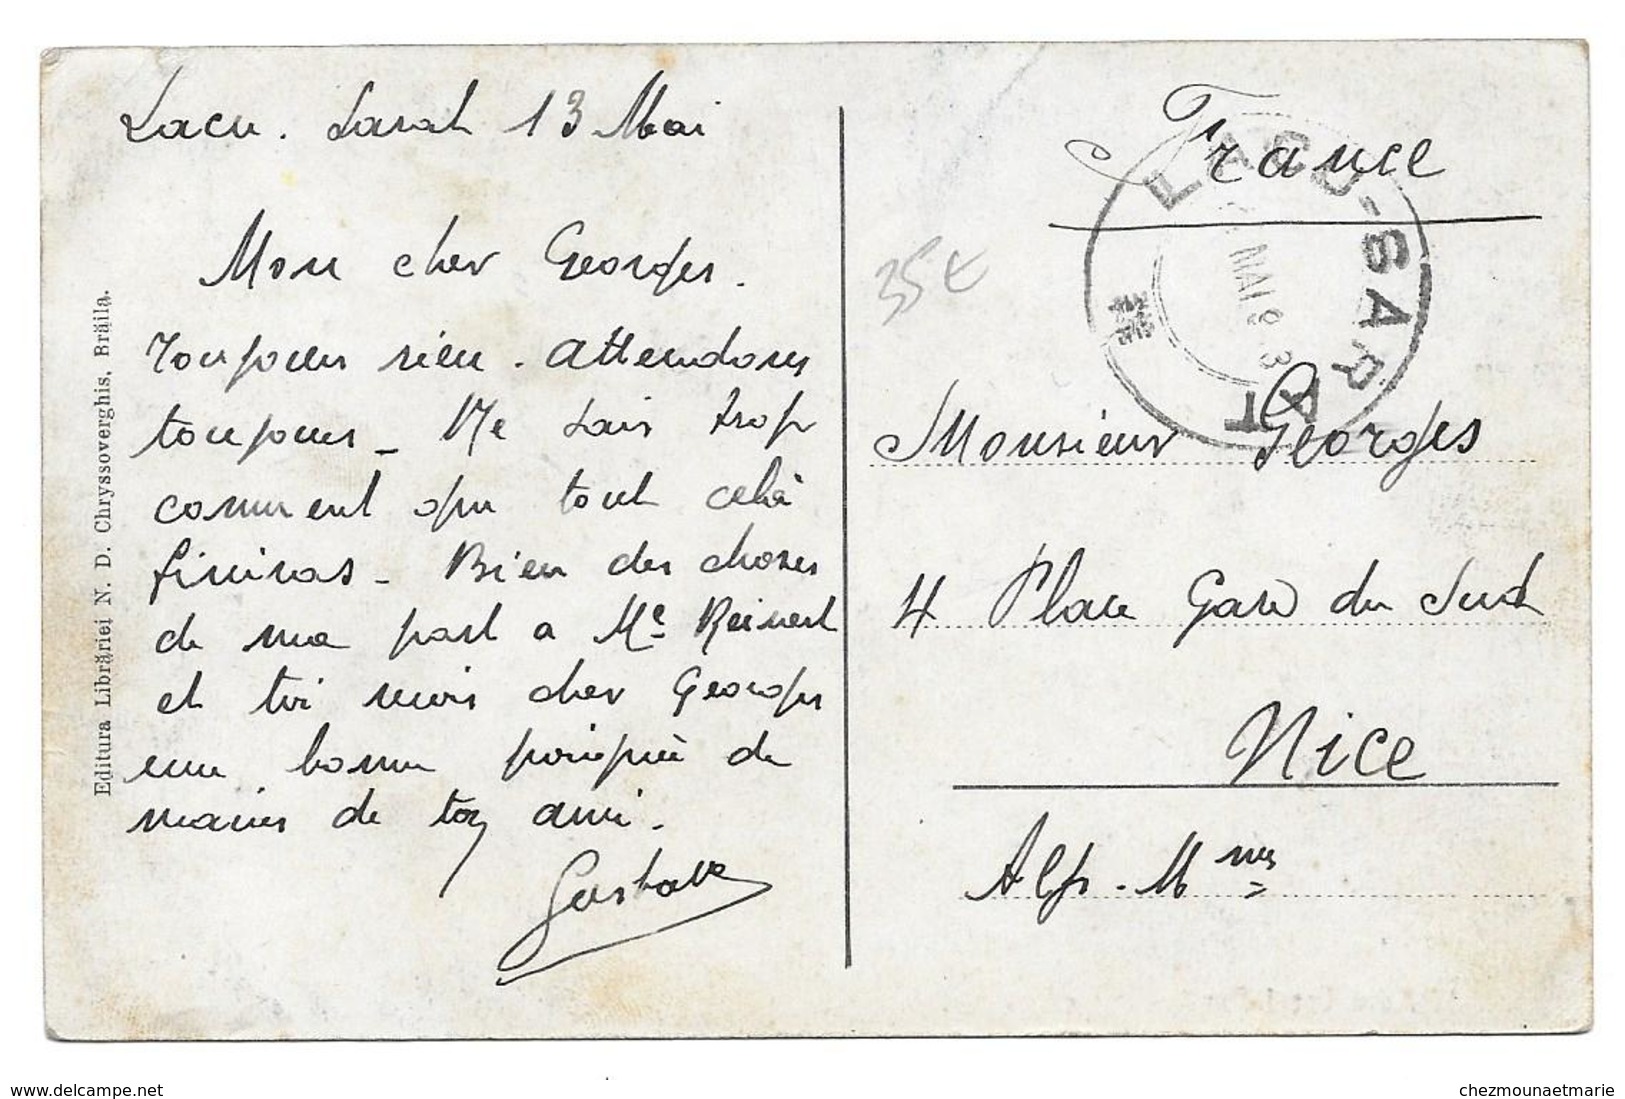 Lacu. Sarah 13 Mai
Mon cher Georges.
Toujours rien. Attendons
toujours - Ne sais trop
comment que tout celà
finiras - Bien des choses
de ma part a Me Reinert
et toi reçois cher Georges
une bonne poignée de
mains de ton ami.
Gustave
Editura Librăriei N. D. Chryssoverghis, Brăila.
35€
France
LACU-SARAT
MAI 913
Monsieur Georges
4 Place Gare du Sud
Nice
Alp. Mmes
www.delcampe.net
chezmounaetmarie